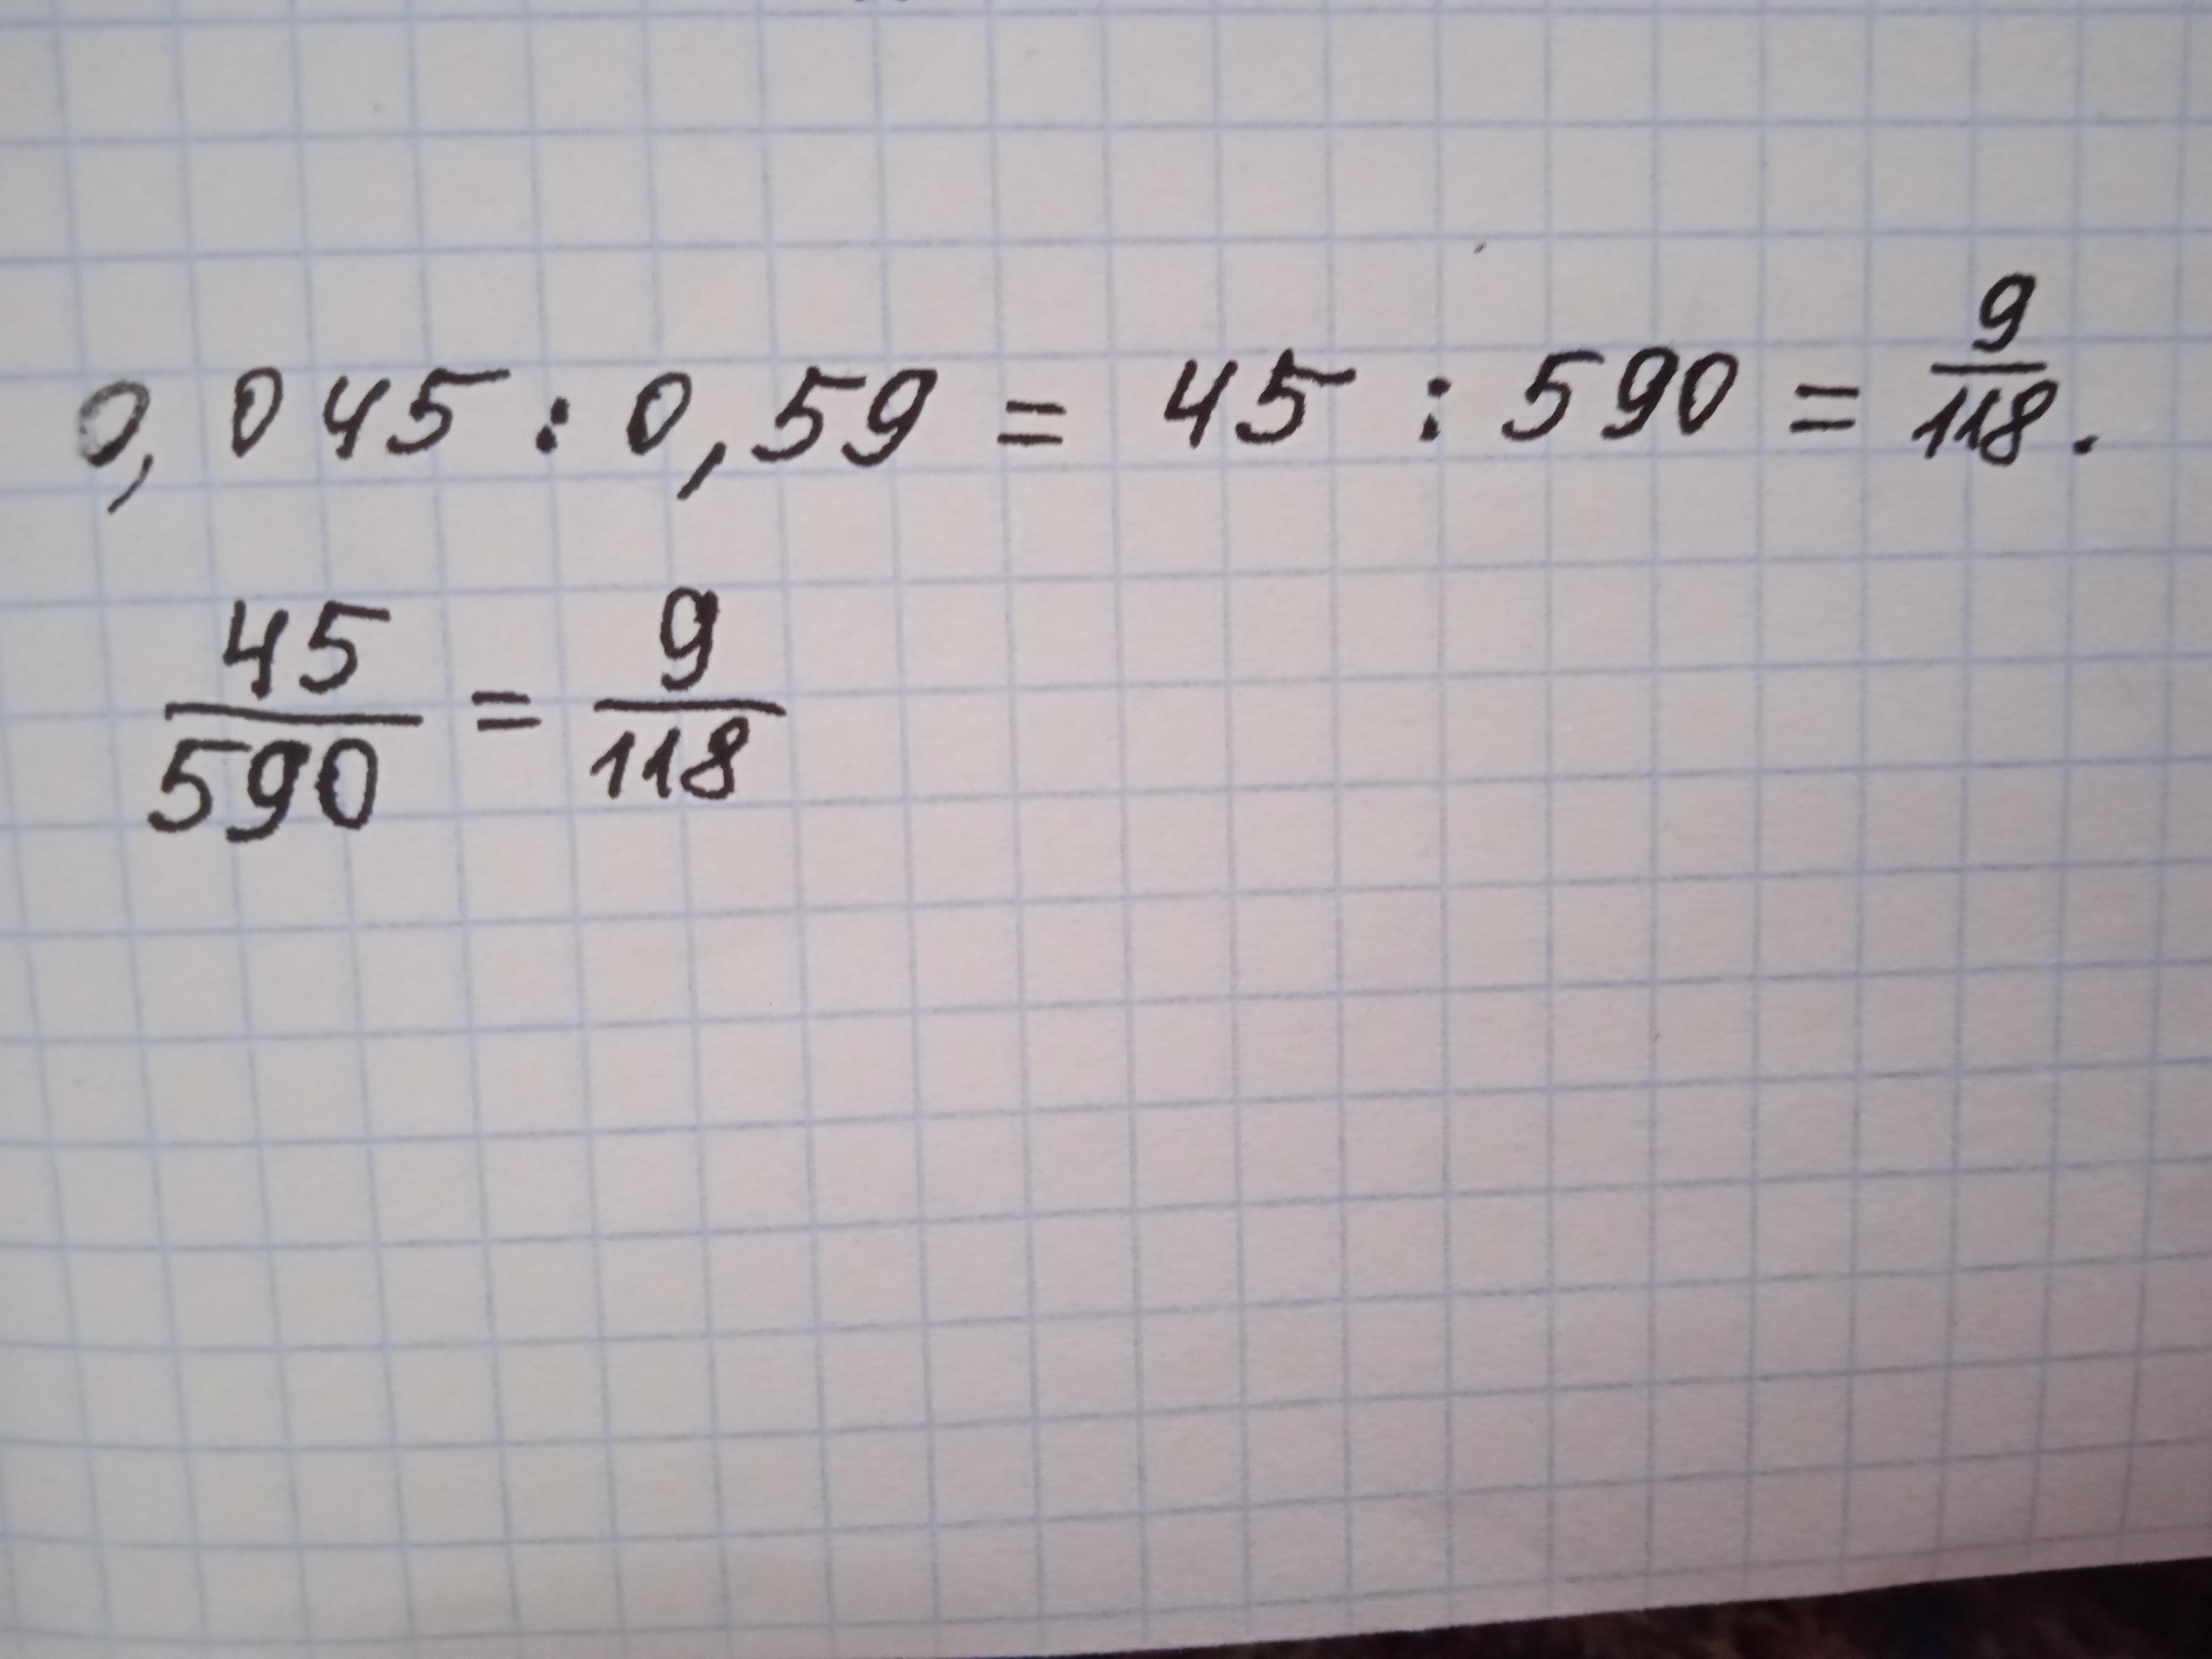 0,045 : 0,59 = 45 : 590 = 9/118.
45/590 = 9/118